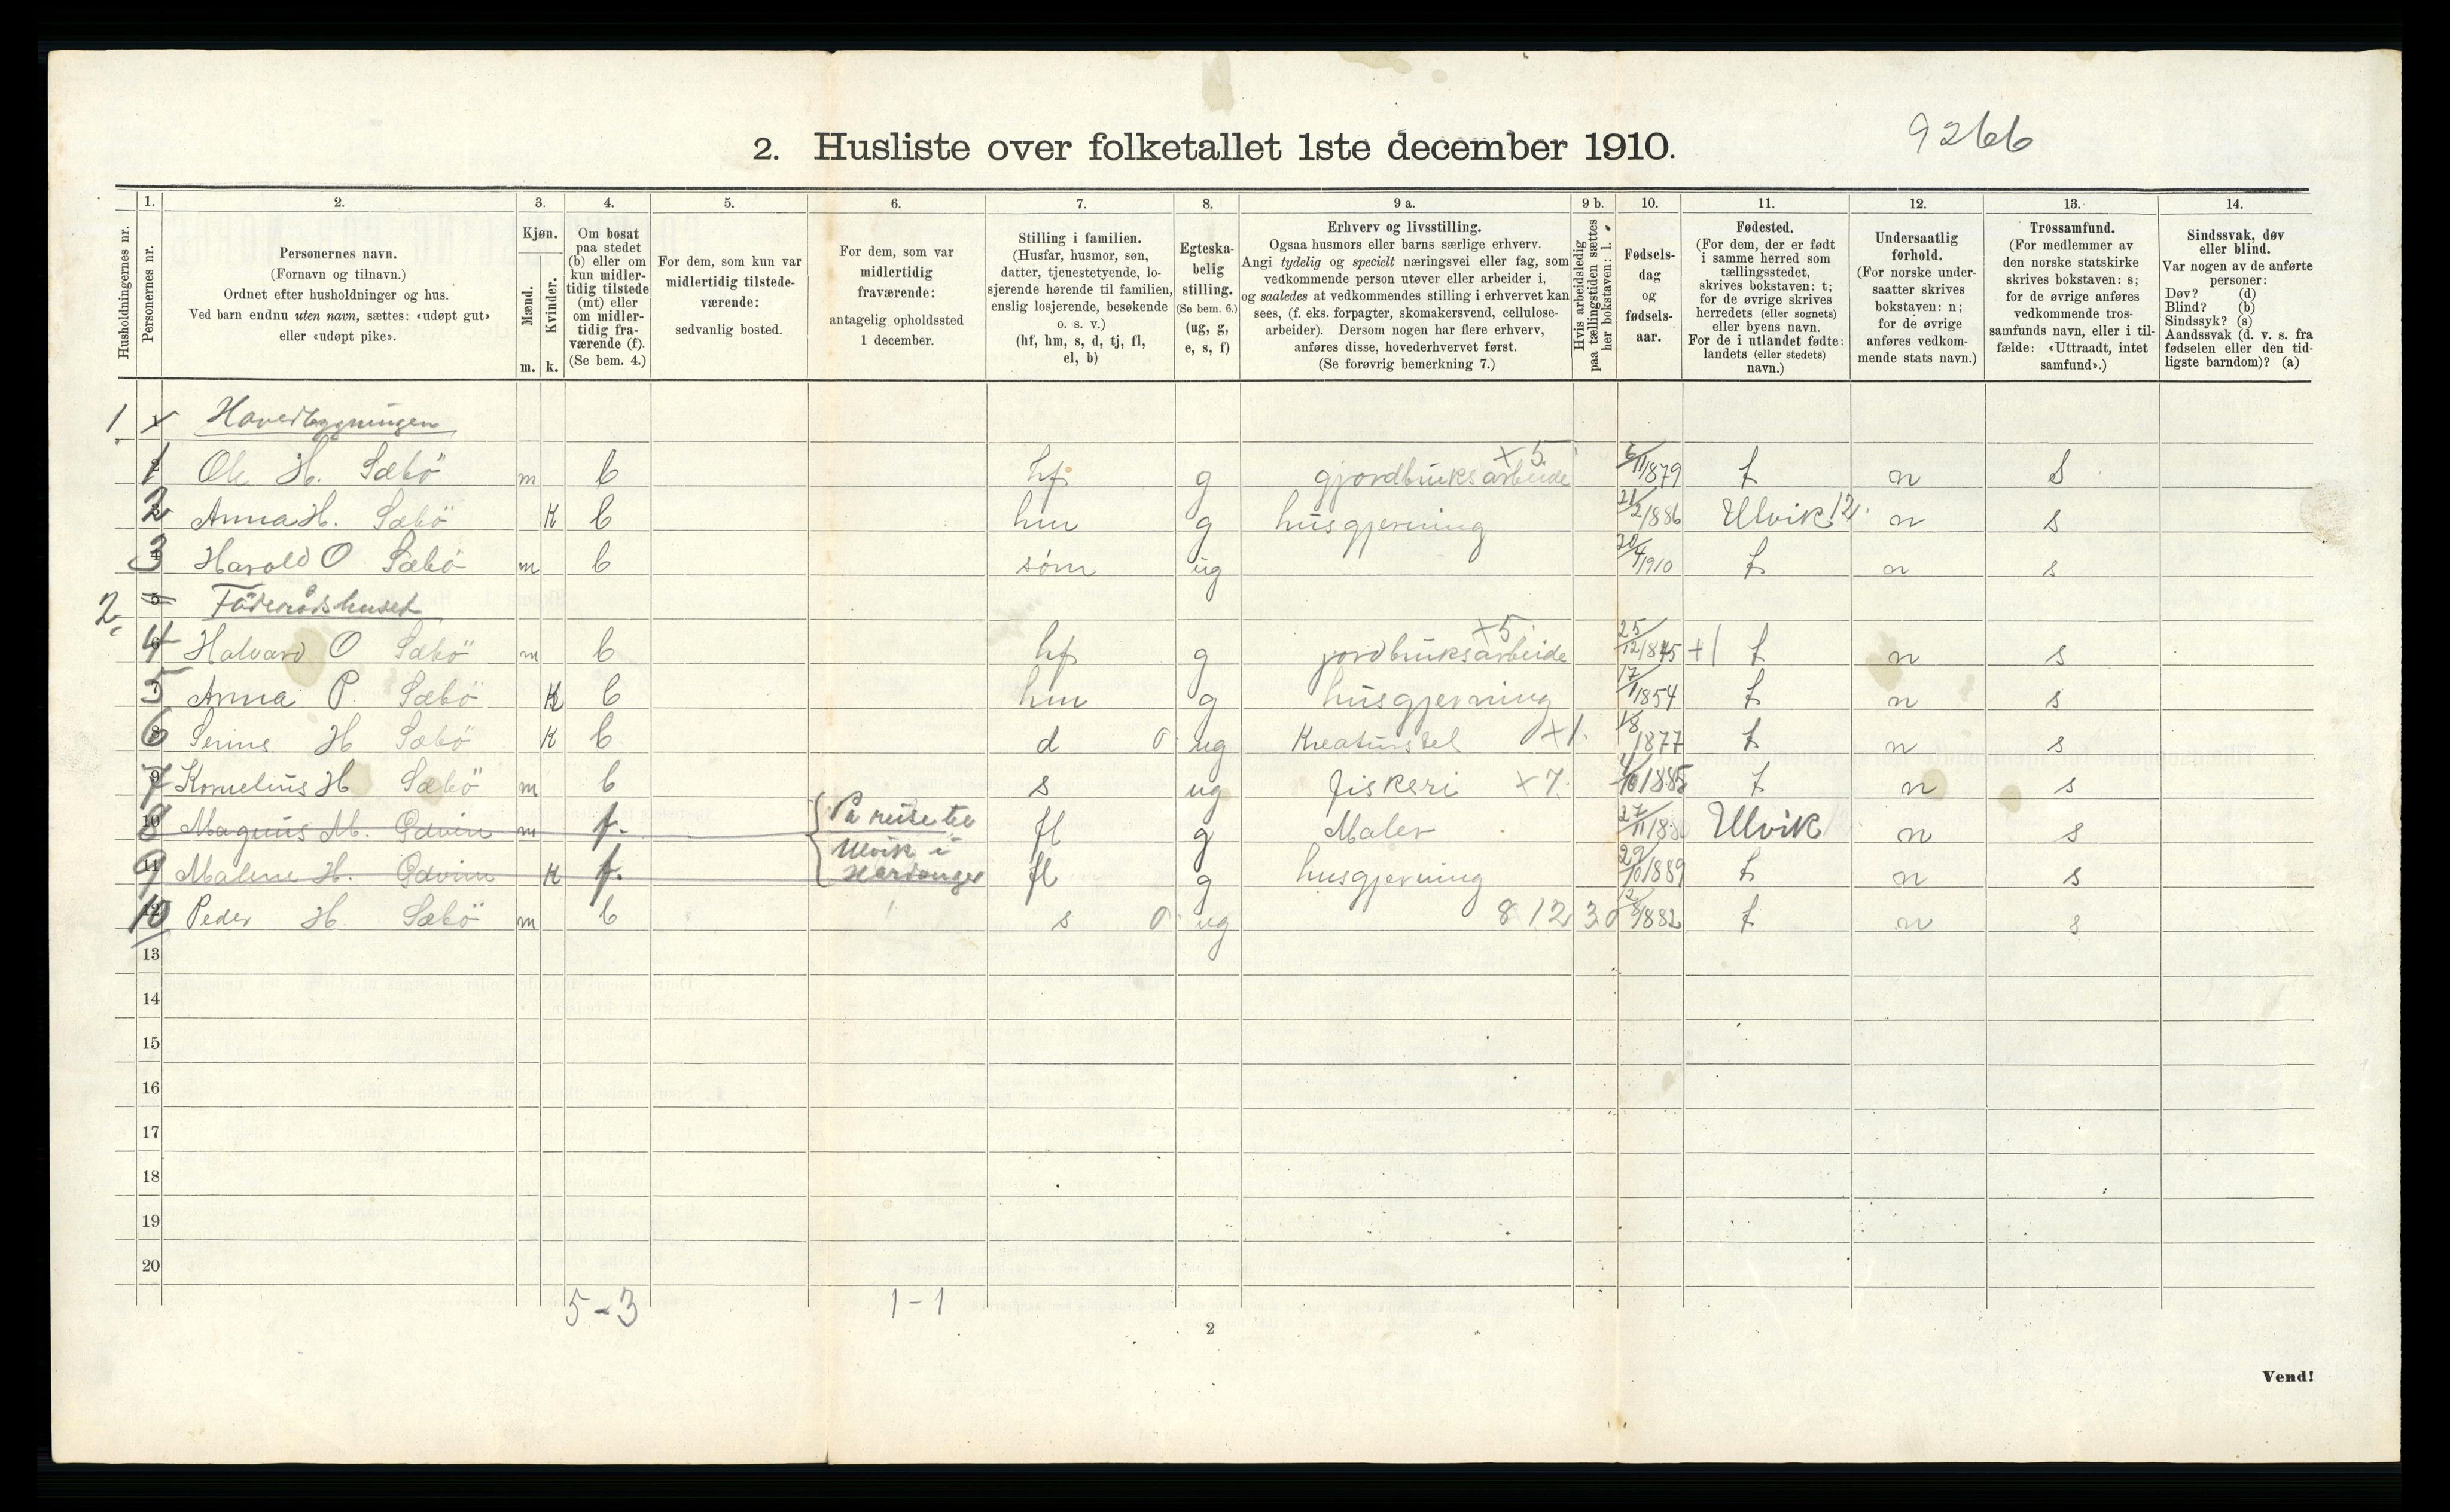 2. Husliste over folketallet 1ste december 1910.
9266
Husholdningernes nr.
1.
Personernes nr.
2.
Personernes navn.
(Fornavn og tilnavn.)
Ordnet efter husholdninger og hus.
Ved barn endnu uten navn, sættes: «udøpt gut»
eller «udøpt pike».
3.
Kjøn.
Mænd.
Kvinder.
m. k.
4.
Om bosat
paa stedet
(b) eller om
kun midler-
tidig tilstede
(mt) eller
om midler-
tidig fra-
værende (f).
(Se bem. 4.)
5.
For dem, som kun var
midlertidig tilstede-
værende:
sedvanlig bosted.
6.
For dem, som var
midlertidig
fraværende:
antagelig opholdssted
1 december.
7.
Stilling i familien.
(Husfar, husmor, søn,
datter, tjenestetyende, lo-
sjerende hørende til familien,
enslig losjerende, besøkende
o. s. v.)
(hf, hm, s, d, tj, fl,
el, b)
8.
Egteska-
belig
stilling.
(Se bem. 6.)
(ug, g,
e, s, f)
9 a.
Erhverv og livsstilling.
Ogsaa husmors eller barns særlige erhverv.
Angi tydelig og specielt næringsvei eller fag, som
vedkommende person utøver eller arbeider i,
og saaledes at vedkommendes stilling i erhvervet kan
sees, (f. eks. forpagter, skomakersvend, cellulose-
arbeider). Dersom nogen har flere erhverv,
anføres disse, hovederhvervet først.
(Se forøvrig bemerkning 7.)
9 b.
Hvis arbeidsledig
paa tællingstiden sættes
her bokstaven: l.
10.
Fødsels-
dag
og
fødsels-
aar.
11.
Fødested.
(For dem, der er født
i samme herred som
tællingsstedet,
skrives bokstaven: t;
for de øvrige skrives
herredets (eller sognets)
eller byens navn.
For de i utlandet fødte:
landets (eller stedets)
navn.)
12.
Undersaatlig
forhold.
(For norske under-
saatter skrives
bokstaven: n;
for de øvrige
anføres vedkom-
mende stats navn.)
13.
Trossamfund.
(For medlemmer av
den norske statskirke
skrives bokstaven: s;
for de øvrige anføres
vedkommende tros-
samfunds navn, eller i til-
fælde: «Uttraadt, intet
samfund».)
14.
Sindssvak, døv
eller blind.
Var nogen av de anførte
personer:
Døv? (d)
Blind? (b)
Sindssyk? (s)
Aandssvak (d. v. s. fra
fødselen eller den tid-
ligste barndom)? (a)
1 Hovedbygningen
1 Ole H. Sæbö m b hf g gjordbruksarbeide x5. 6/11 1879 t n s
2 Anna H. Sæbö K b hm g husgjerning 21/2 1886 Ulvik 12. n s
3 Harold O Sæbö m b søm ug 20/4 1910 t n s
2. Föderådshuset
4 Halvard O Sæbö m b hf g jordbruksarbeide x5. 25/12 1845 +1 t n s
5 Anna P. Sæbö K b hm g husgjerning 17/1 1854 t n s
6 H Sæbö K b d 0 ug Kreaturstel x1. 1877 t n s
7 Kornelius H Sæbö m b s ug fiskeri x7. 4/10 1885 t n s
8 Magnus M. Odvin m f. På reise til fl g Maler 27/11 Ulvik n s
Ulvik i
9 Malene H. Odvin K f. Hardanger fl g husgjerning 29/10 1889 t n s
10 Peder H. Sæbö m b s 0 ug 8 12 30 12/8 1882 t n s
13
14
15
16
17
18
19
20
5-3 1-1
2
Vend!